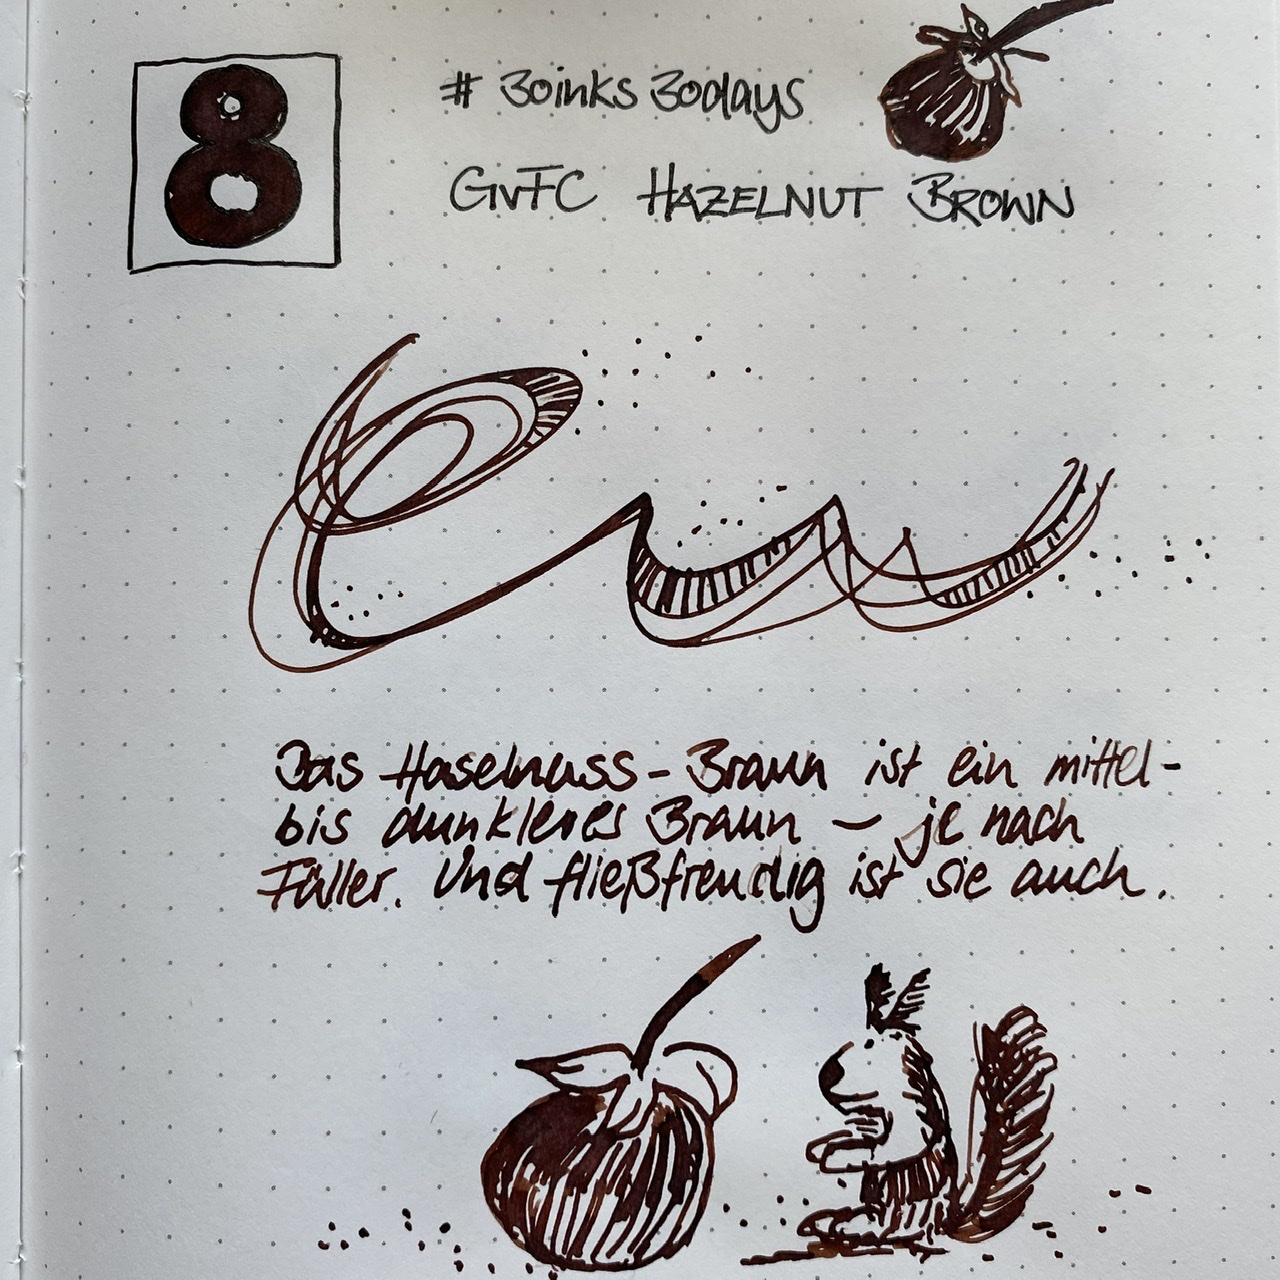 8
# 30inks30days
GvFC HAZELNUT BROWN
Das Haselnuss-Braun ist ein mittel-
bis dunkleres Braun – je nach
Füller. Und fließfreudig ist sie auch.